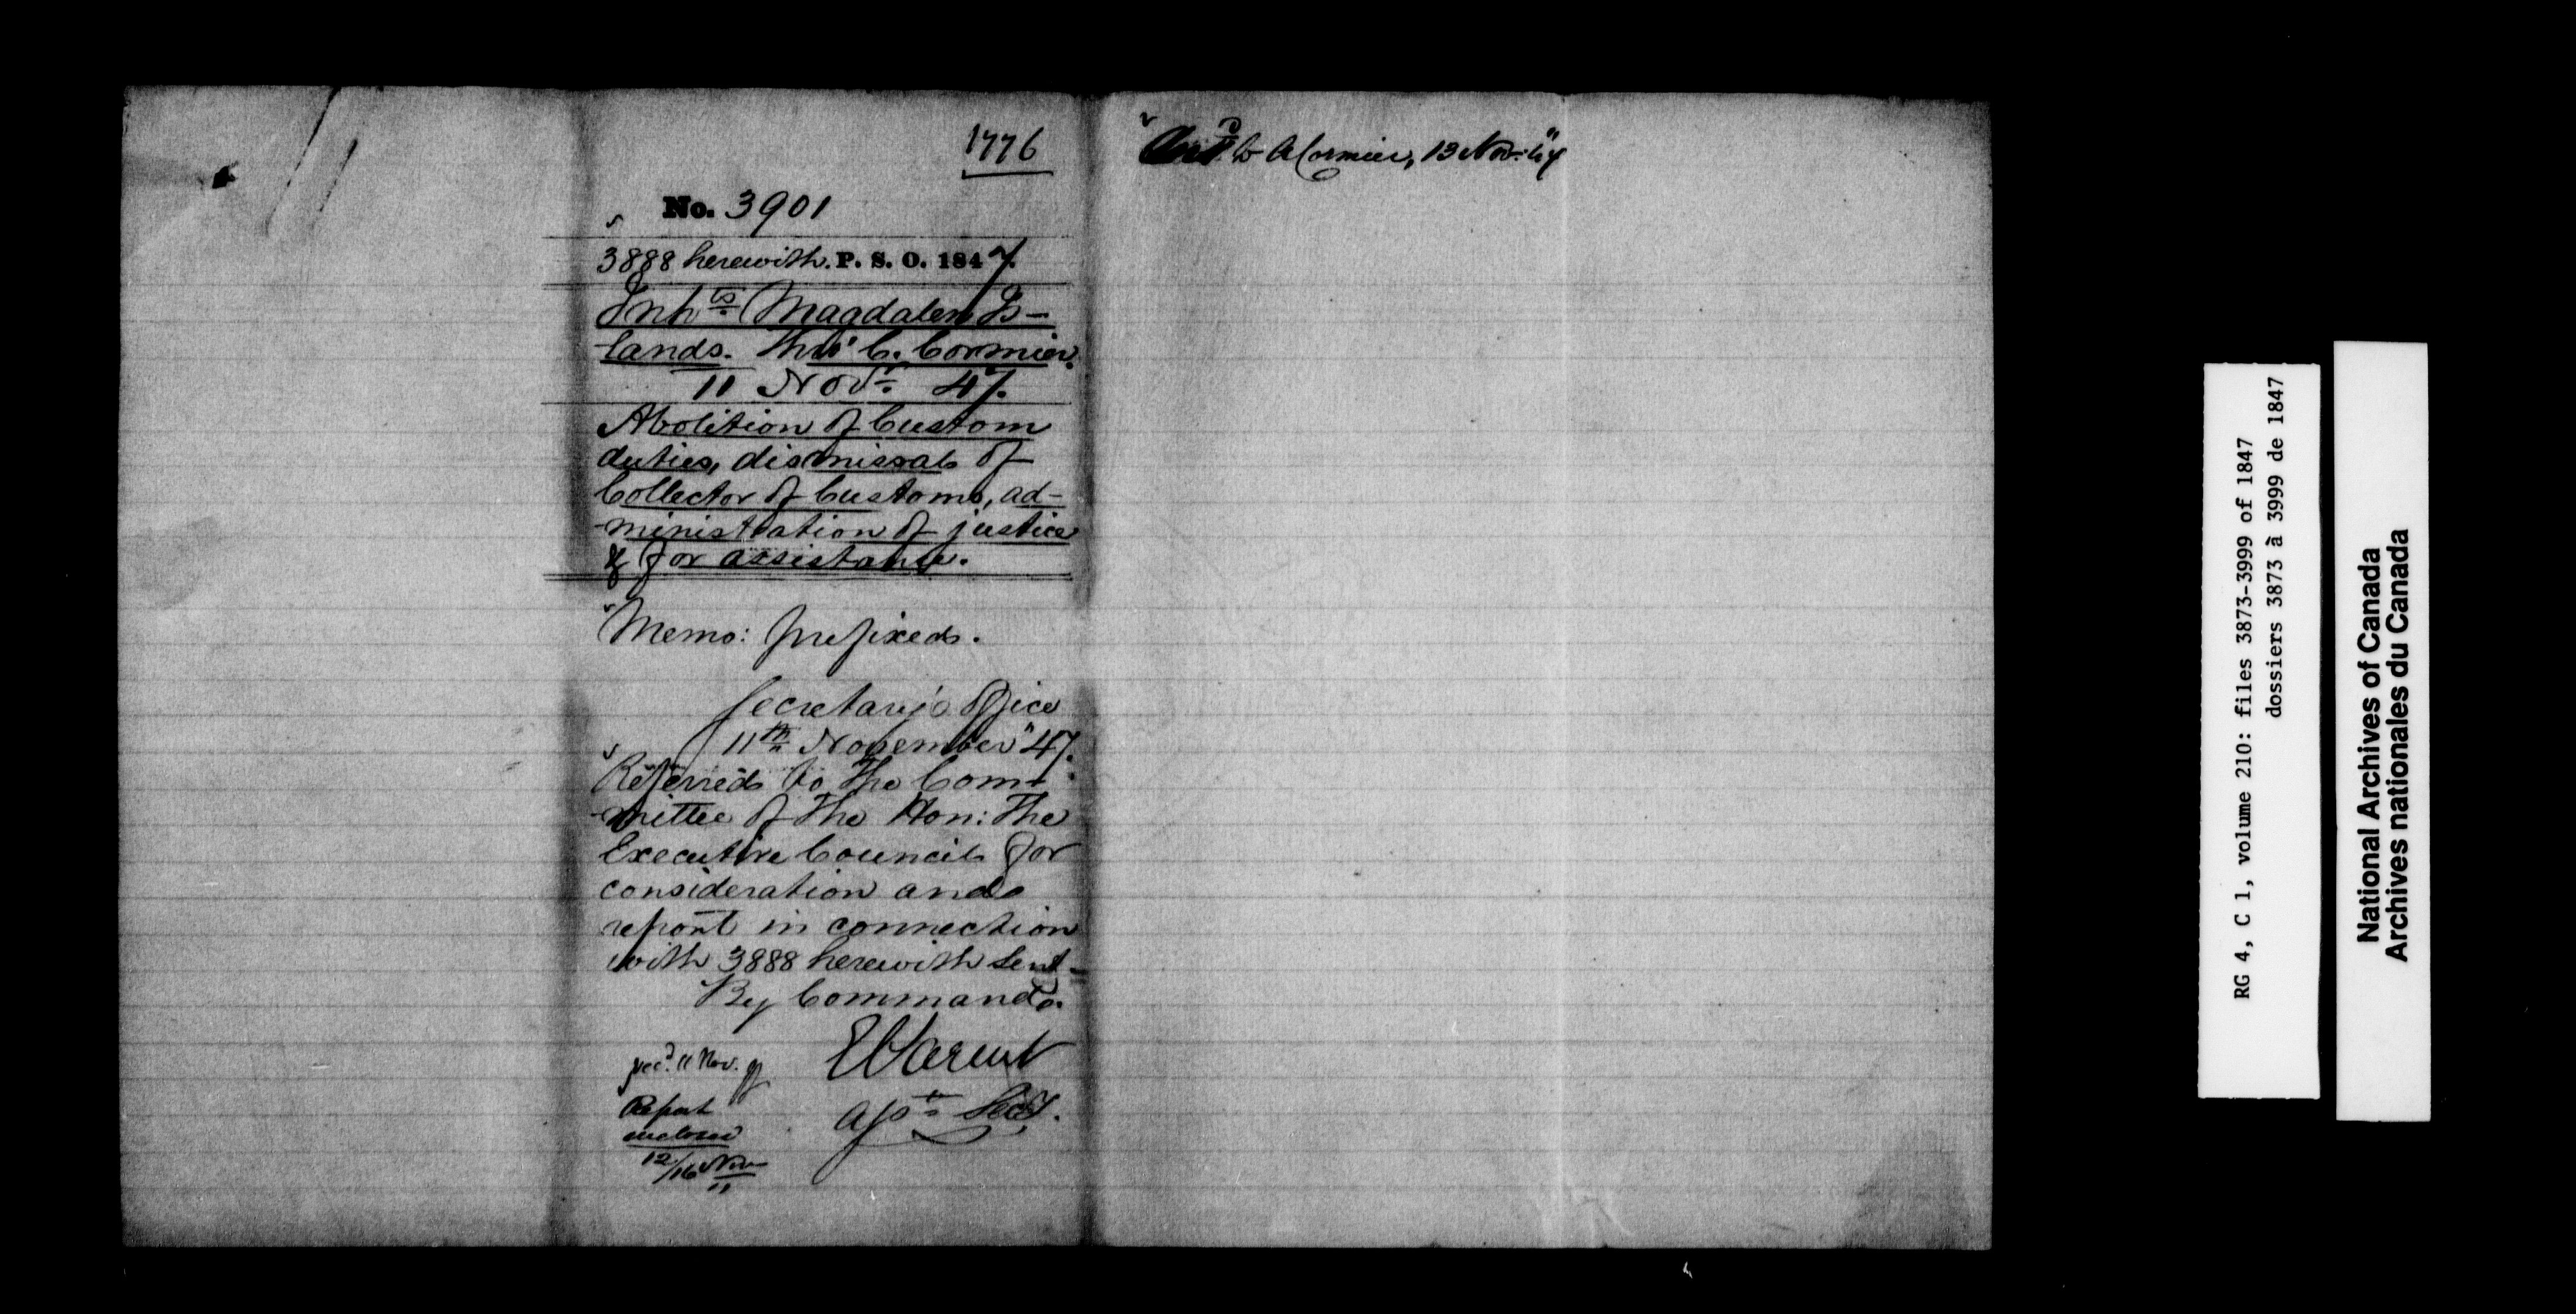 1776
No. 3901
3888 herewith. P. S. O. 1847.
Inhts Magdalen Is-
lands. Thro' C. Cormier.
11 Novr 47.
Abolition of Custom
duties, dismissal of
Collector of Customs, ad-
ministration of justice
& for assistance.
Memo: prefixed.
Secretary's Office
11th November "47.
Referred to the Com-
mittee of the Hon: The
Executive Council for
consideration and
report in connection
with 3888 herewith sent-
By Command.
E Parent
Asst Secy.
recd. 11 Nov.
Report
enclosed
12/16 Nov
to Cormier, 13 Nov: "47
RG 4, C 1, volume 210: files 3873-3999 of 1847
dossiers 3873 à 3999 de 1847
National Archives of Canada
Archives nationales du Canada